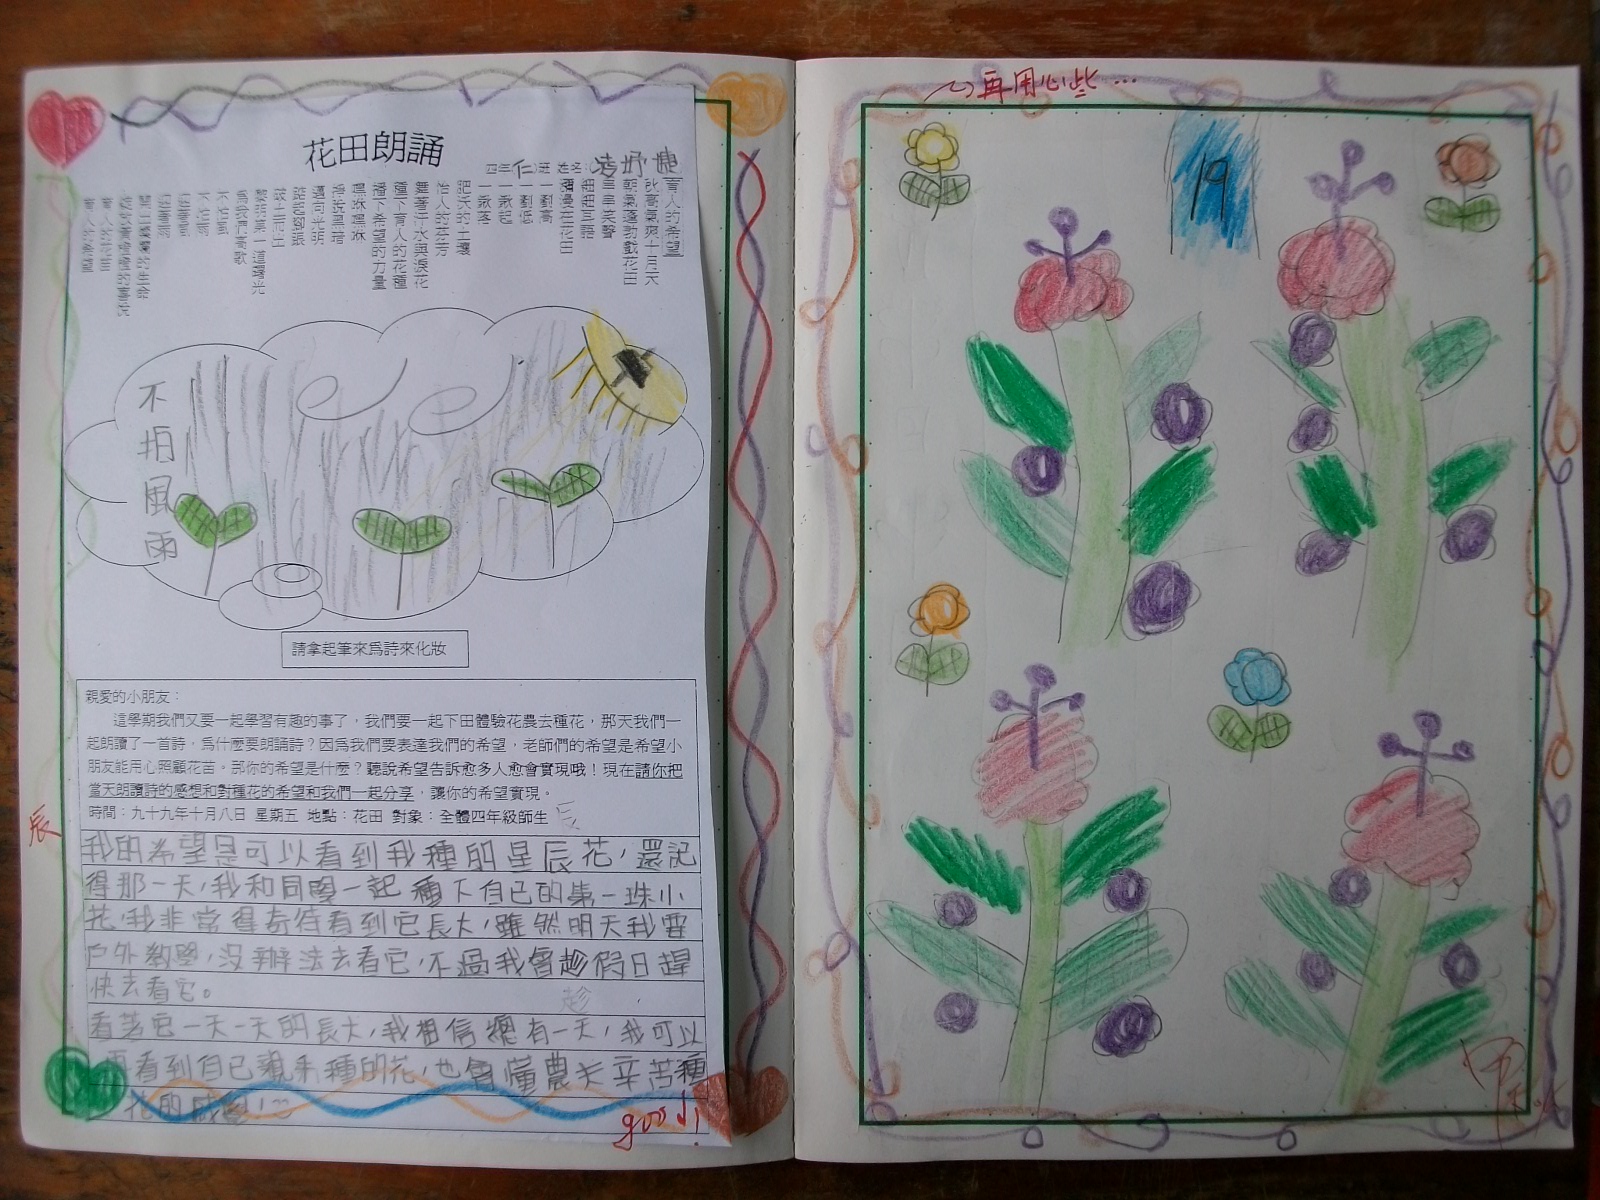 花田朗誦
四年仁班 姓名
育人的希望
秋高氣爽十月天
朝氣蓬勃戲花田
串串笑聲
細細耳語
瀰漫在花田
一鋤高
一鋤低
一鍬起
一鍬落
肥沃的土壤
怡人的芬芳
舞著汗水與淚花
種下育人的花種
播下希望的力量
掙脫黑暗
邁向光明
破土而出
為我們高歌
不怕風
不怕雨
不怕風雨
請拿起筆來為詩來化妝
親愛的小朋友：
這學期我們又要一起學習有趣的事了，我們要一起下田體驗花農去種花，那天我們一
起朗讀了一首詩，為什麼要朗誦詩？因為我們要表達我們的希望，老師們的希望是希望小
朋友能用心照顧花苗。那你的希望是什麼？聽說希望告訴愈多人愈會實現哦！現在請你把
當天朗讀詩的感想和對種花的希望和我們一起分享，讓你的希望實現。
時間：九十九年十月八日 星期五 地點：花田 對象：全體四年級師生
辰
我的希望是可以看到我種的星辰花，還記
得那一天，我和同學一起種下自己的第一珠小
花，我非常得奇待看到它長大，雖然明天我要
戶外教學，沒辦法去看它，不過我會趁假日趕
快去看它。
趁
看著它一天一天的長大，我相信總有一天，我可以
再看到自己親手種的花，也會懂農夫辛苦種
花的感覺！
good!
再用心些…
19
甲